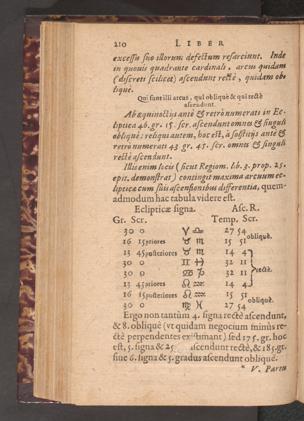 210 LIBER
excessu suo illorum defectum resarciunt. Inde
in quouis quadrante cardinali, arcus quidam
(discreti scilicet) ascendunt rectè, quidam ob-
liquè.
Qui sunt illi arcus, qui obliquè & qui rectè
ascendunt.
Ab æquinoctijs antè & retrò numerati in Ec-
liptica 46. gr. 15. scr. ascendunt omnes & singuli
obliquè: reliqui autem, hoc est, à solstitijs ante &
retrò numerati 43 gr. 45. scr. omnes & singuli
rectè ascendunt.
Illis enim locis (sicut Regiom. lib. 3. prop. 25.
epit. demonstrat) contingit maxima arcuum ec-
lipticæ cum suis ascensionibus differentia, quem-
admodum hac tabula videre est.
Eclipticæ signa. Asc. R.
Gr. Scr. Temp. Scr.
30 0 ♈ ♎ 27 54
16 15 priores ♉ ♏ 15 51 obliquè.
13 45 posteriores ♉ ♏ 14 4
30 0 ♊ ♐ 32 11
30 0 ♋ ♑ 32 11 rectè.
13 45 priores ♌ ♒ 14 4
16 15 posteriores ♌ ♒ 15 51 obliquè.
30 0 ♍ ♓ 27 54
Ergo non tantùm 4. signa rectè ascendunt,
& 8. obliquè (vt quidam negocium minùs re-
ctè perpendentes existimant) sed 175. gr. hoc
est, 5. signa & 25 ascendunt rectè, & 185. gr.
siue 6. signa & 5. gradus ascendunt obliquè.
* V. Partu